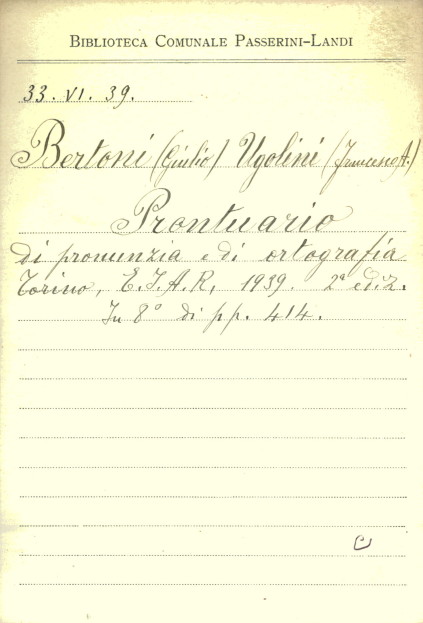 BIBLIOTECA COMUNALE PASSERINI-LANDI
33. VI. 39.
Bertoni (Giulio) Ugolini (Francesco A.)
Prontuario
di pronunzia e di ortografia
Torino, E.I.A.R, 1939. 2ª ediz.
In 8° di pp. 414.
C